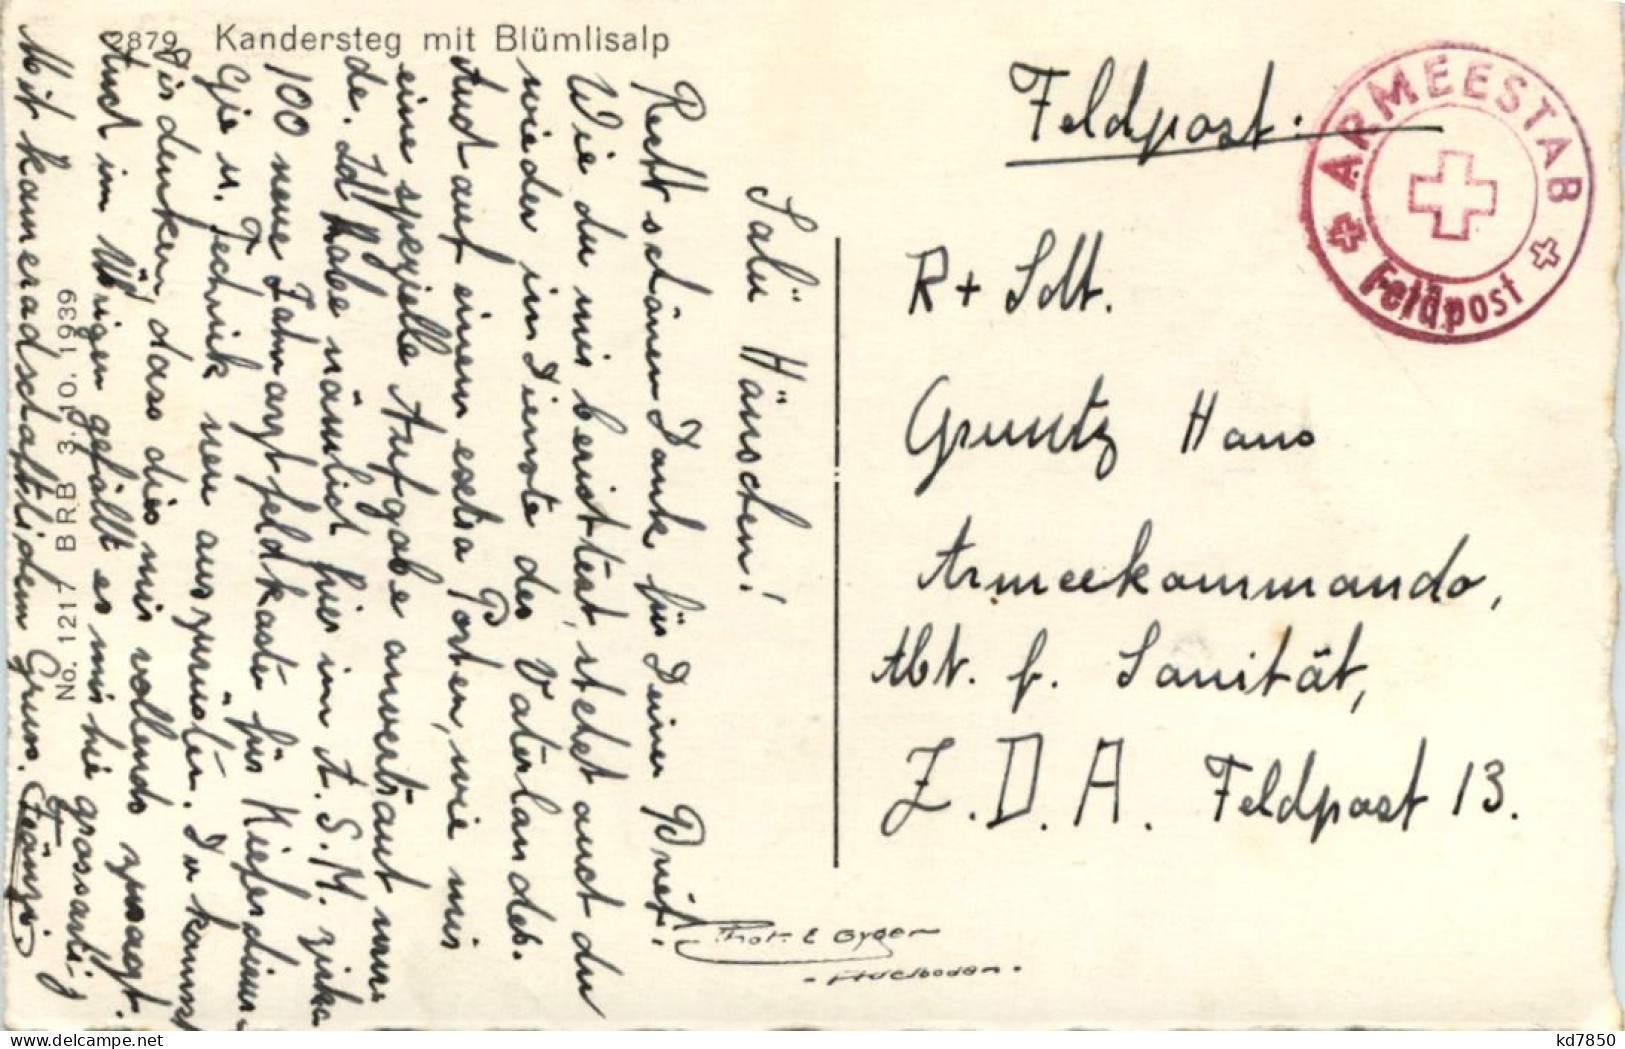 2879 Kandersteg mit Blümlisalp
Feldpost.
ARMEESTAB
Feldpost
R+ Sdt.
Gruntz Hans
Armeekommando,
Abt. f. Sanität,
Z. D. A. Feldpost 13.
Salü Hänschen!
Recht schönen Dank für Deinen Brief.
Wie du mir berichtest, stehst auch du
wieder im Dienste des Vaterlandes.
Auch auf einem extra Posten, wie mir
eine spezielle Aufgabe anvertraut wur-
de. Ich habe nämlich hier im A.S.M. zirka
100 neue Zahnarztfeldkasten für Kieferchirur-
gie u. Technik neu auszurüsten. Du kannst
dir denken, dass dies mir vollends zusagt.
Auch im Übrigen gefällt es mir hie grossartig
Mit kameradschaftlichem Gruss. Fränzi.
No. 1217 BRB 3.10.1939
Phot. E Gyger
- Adelboden -
kd7850